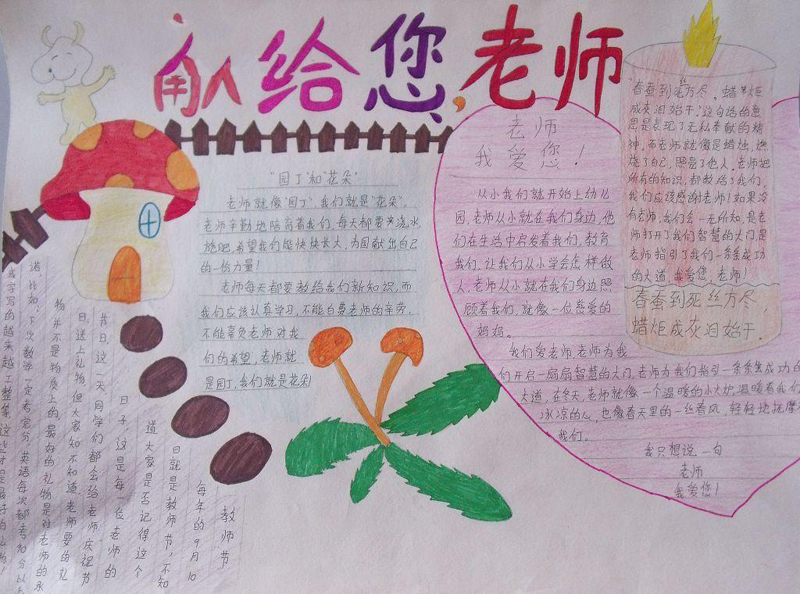 献给您,老师
"园丁"和"花朵"
老师就像"园丁",我们就是"花朵",
老师辛勤地陪育着我们,每天都要来浇水
施肥,希望我们能快快长大,为国献出自己
的一份力量!
老师每天都要教给我们新知识,而
我们应该认真学习,不能白费老师的辛劳,
不能辜负老师对我
们的希望,老师就
是园丁,我们就是花朵!
老师
我爱您!
从小我们就开始上幼儿
园,老师从小就在我们身边,他
们在生活中启发着我们,教育
我们,让我们从小学会怎样做
人,老师从小就在我们身边照
顾着我们,就像一位慈爱的
妈妈。
我们爱老师,老师为我
们开启一扇扇智慧的大门,老师为我们指引一条条成功的
大道,在冬天,老师就像一个温暖的小火炉,温暖着我们
冰凉的心,也像春天里的一丝春风,轻轻地抚摩
我们。
我只想说一句
老师
我爱您!
"春蚕到死丝方尽,蜡炬
成灰泪始干."这句话的意
思是表现了无私奉献的精
神,而老师就像是蜡烛,燃
烧了自己,照亮了他人,老师把
所有的知识,都教给了我们,
我们应该感谢老师!如果没
有老师,我们会一无所知,是老
师打开了我们智慧的大门,是
老师指引了我们一条条成功
的大道,我爱您,老师!
春蚕到死丝方尽
蜡炬成灰泪始干.
教师节
每年的9月10
日就是教师节,不知
道大家是否记得这个
日子,这是每一位老师的
节日,这一天,同学们都会给老师庆祝节
日,送上礼物,但大家知不知道,老师要的礼
物并不是物质上的,最好的礼物是对老师的承
诺,比如,下次数学一定考富分,英语每次都考90分以